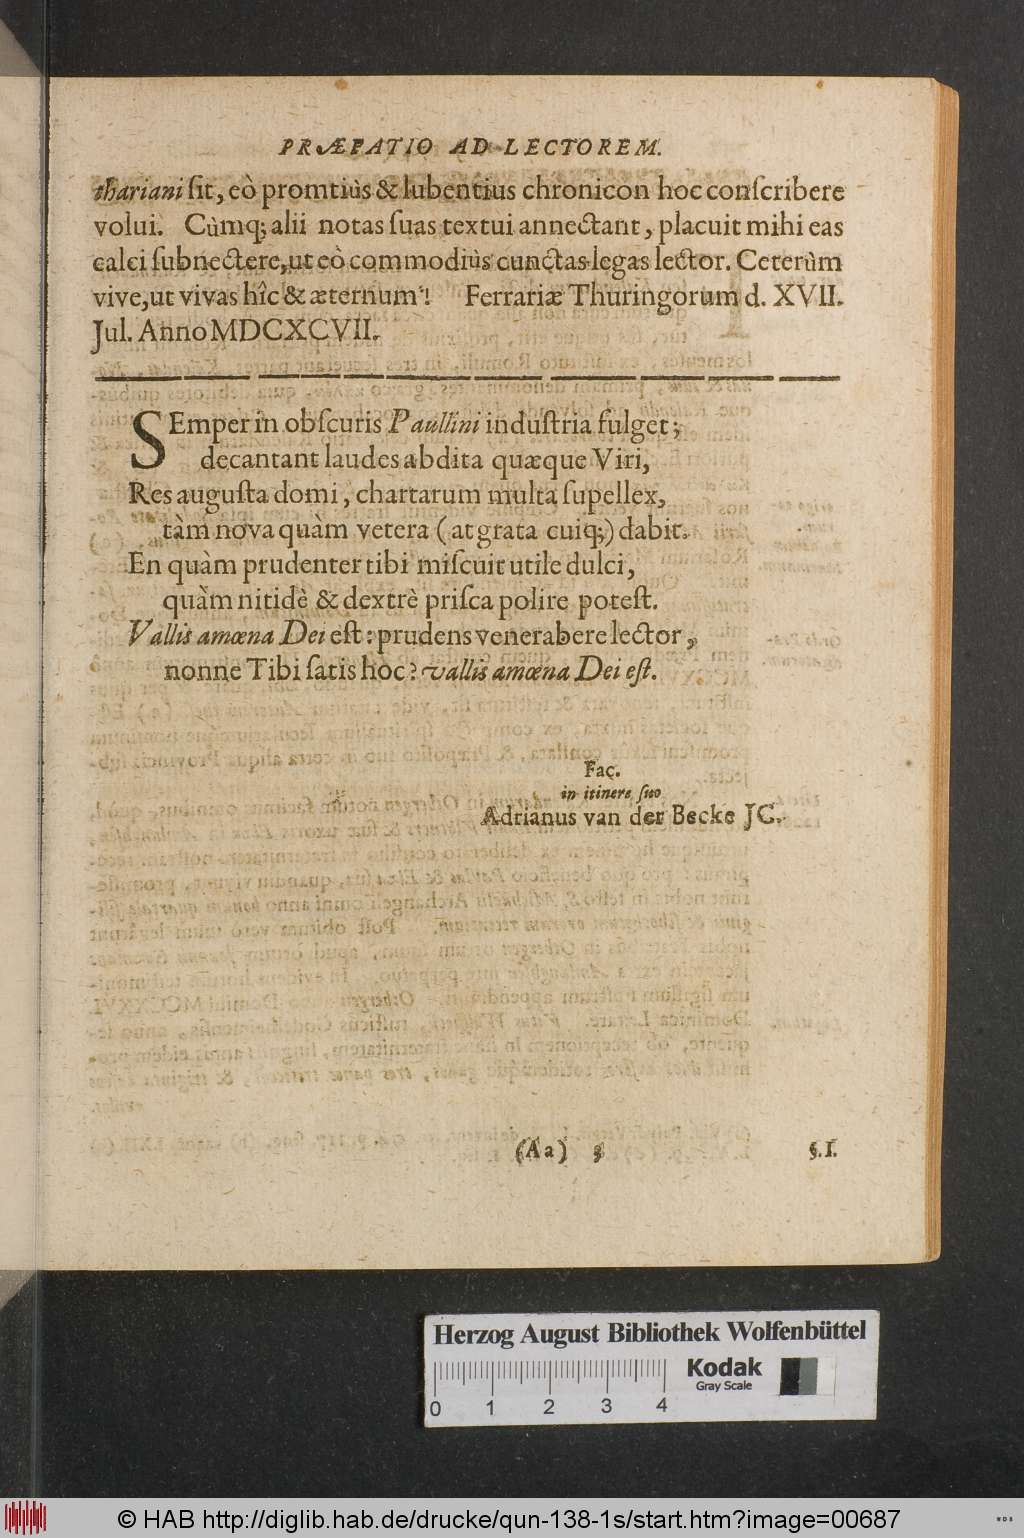 PRÆFATIO AD LECTOREM.
thariani ſit, eò promtiùs & lubentius chronicon hoc conſcribere
volui. Cùmq; alii notas ſuas textui annectant, placuit mihi eas
calci ſubnectere, ut eò commodiùs cunctas legas lector. Ceterùm
vive, ut vivas hîc & æternum! Ferrariæ Thuringorum d. XVII.
Jul. Anno MDCXCVII.
SEmper in obſcuris Paullini induſtria fulget;
decantant laudes abdita quæque Viri,
Res auguſta domi, chartarum multa ſupellex,
tàm nova quàm vetera (at grata cuiq;) dabit.
En quàm prudenter tibi miſcuit utile dulci,
quàm nitidè & dextrè priſca polire poteſt.
Vallis amœna Dei eſt: prudens venerabere lector,
nonne Tibi ſatis hoc? vallis amœna Dei eſt.
Fac.
in itinere ſuo
Adrianus van der Becke JC.
(Aa) 3
§. I.
Herzog August Bibliothek Wolfenbüttel
Kodak
Gray Scale
0 1 2 3 4
© HAB http://diglib.hab.de/drucke/qun-138-1s/start.htm?image=00687